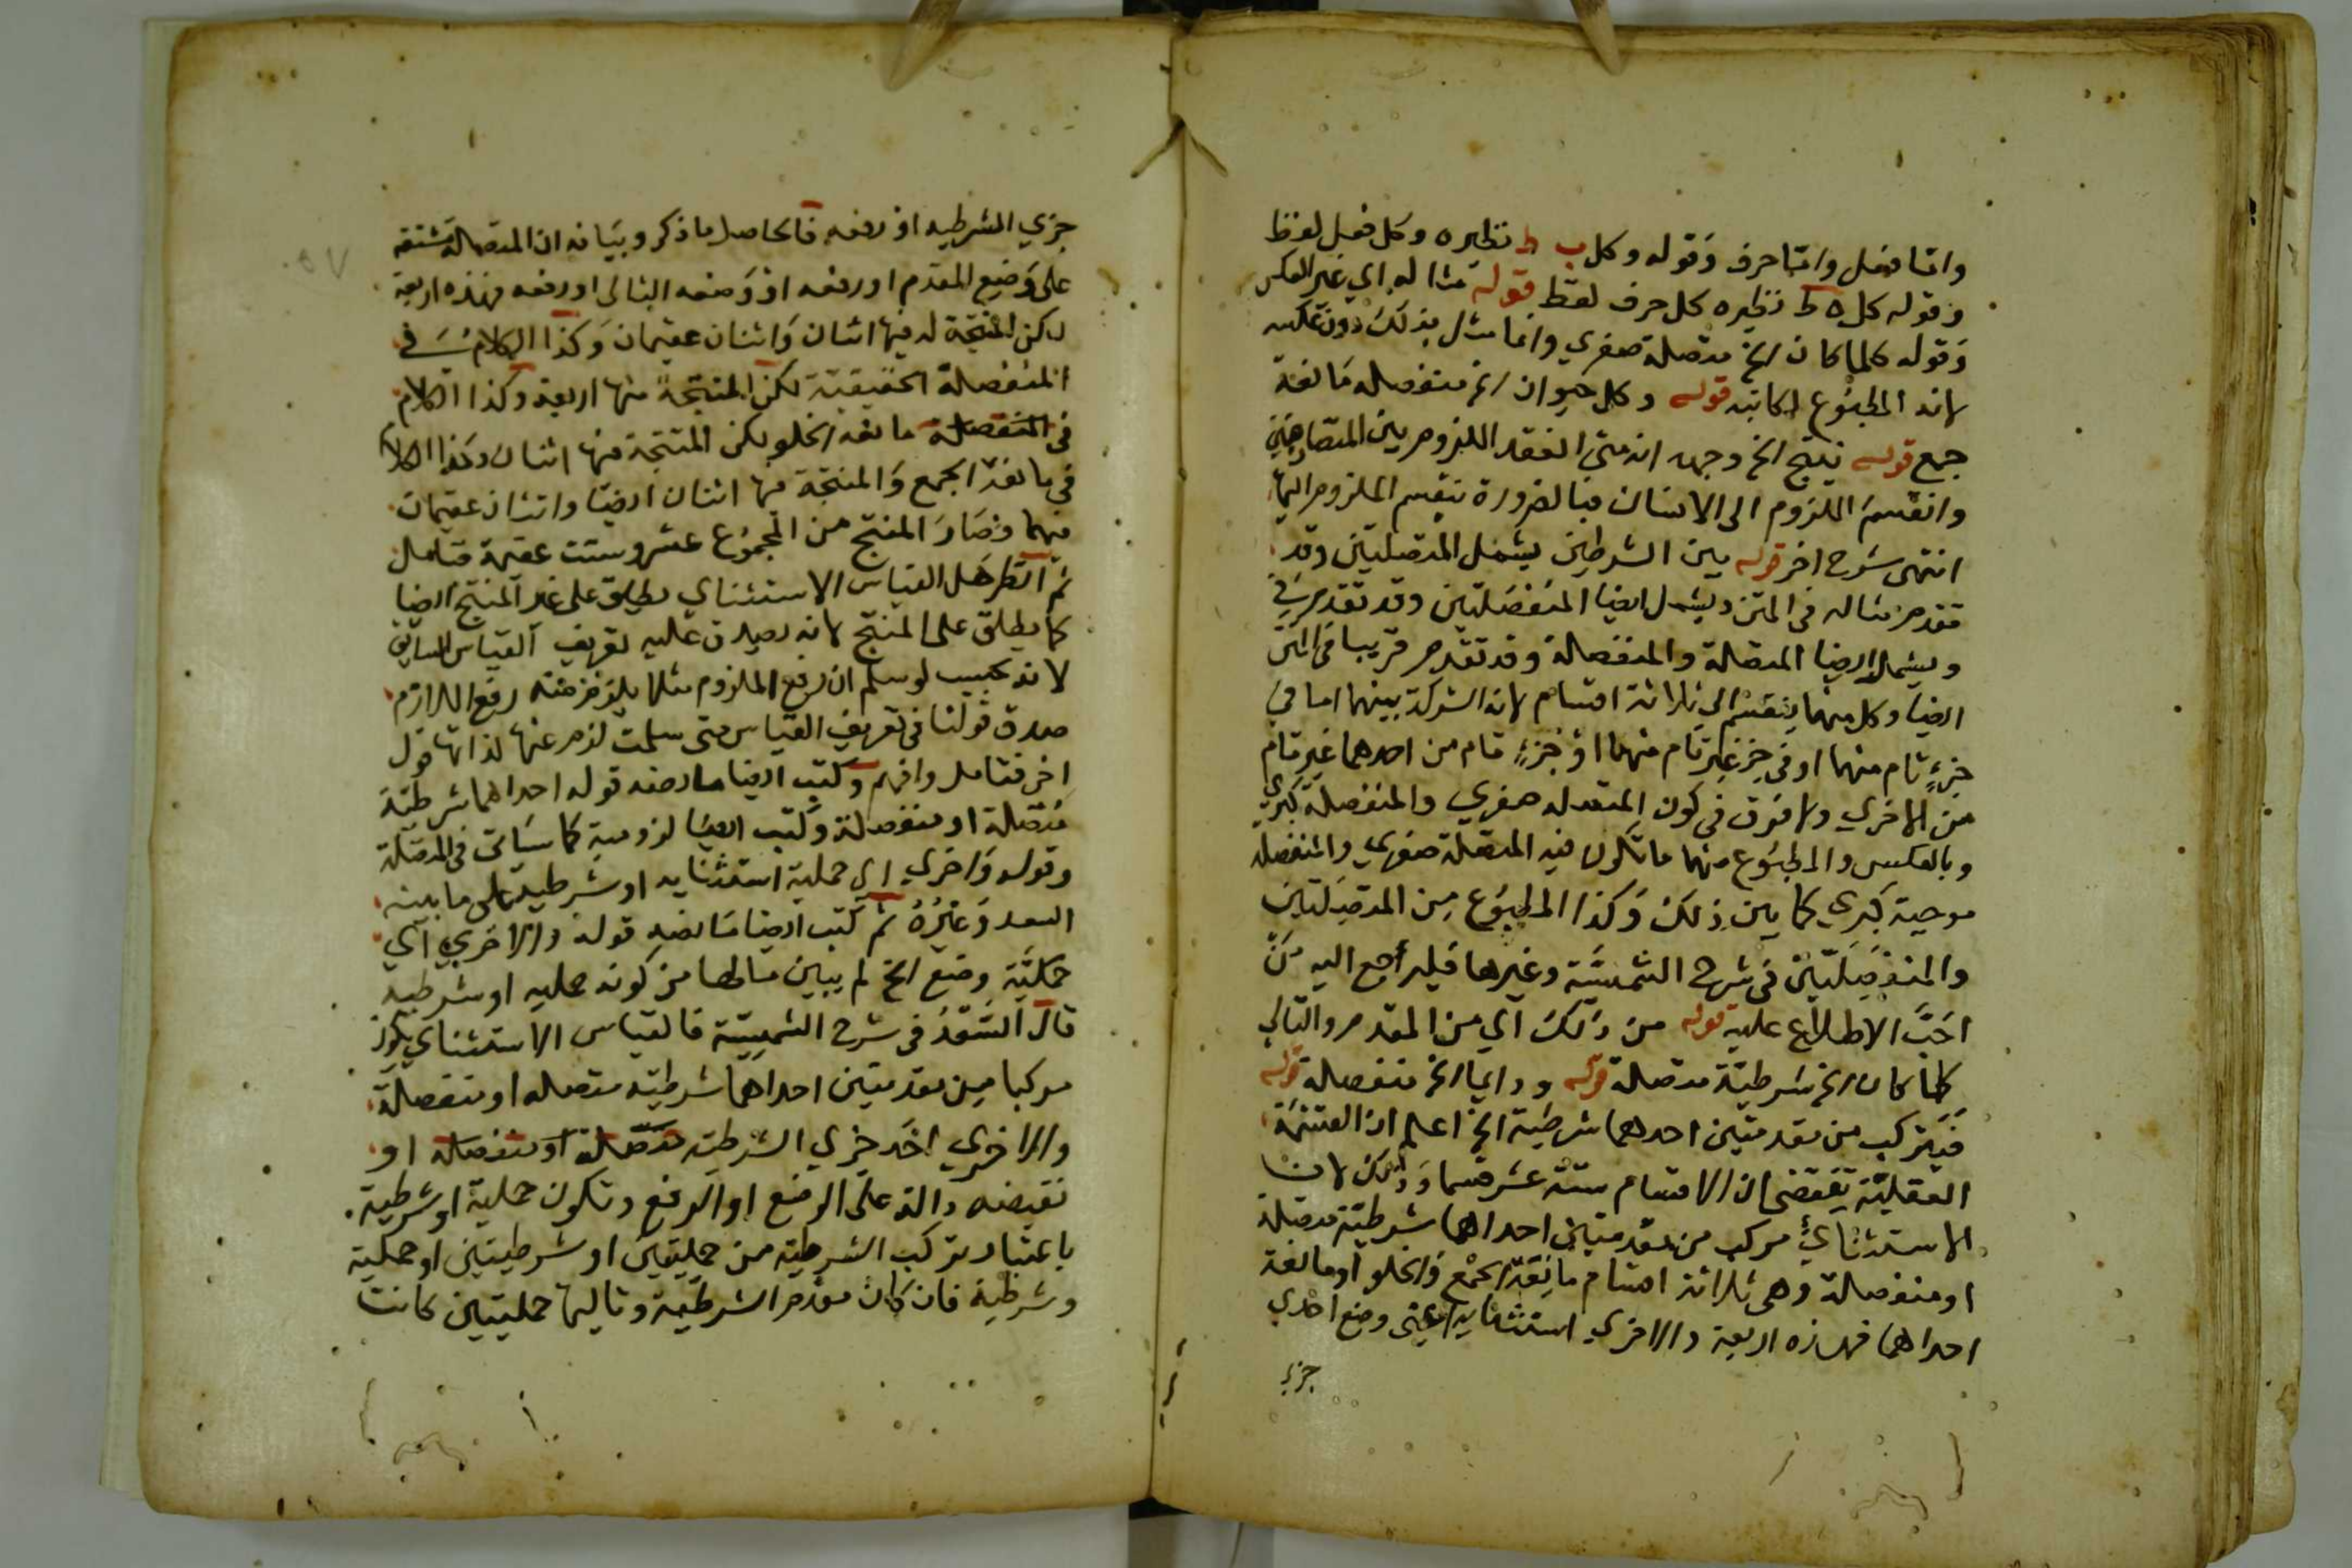 واما فعل واما حرف وقوله وكل ب ط نظيره وكل فعل لفظ
وقوله كل ه ط نظيره كل حرف لفظ قوله مثاله اي غير العكس
وقوله كلما كان الخ متصلة صغري وانما مثل بذلك دون عكسه
لانه المطبوع قوله وكل حيوان الخ منفصله مانعة
جمع قوله ينتج الخ وجهه انه متى انعقد اللزوم بين المتصاحبين
وانقسم اللزوم الى الانسان فبالضرورة ينقسم الملزوم اليها
انتهى شرح اخر قوله بين الشرطين يشمل المتصلتين وقد
تقدم مثاله في المتن ويشمل ايضا المنفصلتين وقد تقدم في
ويشمل ايضا المتصلة والمنفصلة وقد تقدم قريبا في المتن
ايضا وكل منهما ينقسم الى ثلاثة اقسام لانه الشركة بينهما اما في
جزءٍ تام منهما او في جزء غير تام منهما او جزءٍ تام من احدهما غير تام
من الاخري ولا فرق في كون المتصله صغري والمنفصلة كبري
وبالعكس والمطبوع منهما ما تكون فيه المتصلة صغري والمنفصله
موجبة كبري كما بين ذلك وكذا المطبوع من المتصلتين
والمنفصلتين في شرح الشمسية وغيرها فليراجع اليه من
احب الاطلاع عليه قوله من ذلك اي من المقدم والتالي
كلما كان الخ شرطية متصلة قوله ودايما الخ منفصلة قوله
فيتركب من مقدمتين احدهما شرطية الخ اعلم ان القسمة
العقلية تقتضي ان الاقسام ستة عشر قسما وذلك لان
الاستثنائي مركب من مقدمتين احداهما شرطية متصلة
او منفصلة وهي ثلاثة اقسام مانعة الجمع والخلو او مانعة
احداهما فهذه اربعة والاخري استثنائية اعني وضع احدي
جزء
جزي الشرطيه او رفعه فالحاصل ما ذكر وبيانه ان المتصلة مشتقه
على وضع المقدم او رفعه او وضعه التالي او رفعه فهذه اربعة
لكن المنتجة له فيها اثنان واثنان عقيمان وكذا الكلام في
المنفصلة الحقيقية لكن المنتجة منها اربعة وكذا الكلام
في المنفصلة مانعة الخلو لكن المنتجة منها اثنان وكذا الكلام
في مانعة الجمع والمنتجة منها اثنان ايضا واثنان عقيمان
منهما وصار المنتج من المجموع عشر وستت عقيمة فتامل
ثم انظر هل القياس الاستثناي يطلق على غير المنتج ايضا
كما يطلق على المنتج لانه يصدق عليه تعريف القياس السابق
لانه بحيث لو سلم ان رفع الملزوم مثلا يلزم منه رفع اللازم
صدق قولنا في تعريف القياس متى سلمت لزم عنها لذاتها قول
اخر فتامل وافهم وكتب ايضا ما نصه قوله احداهما شرطية
متصلة او منفصلة وكتب ايضا لزومية كما سياتي في المتصلة
وقوله واخري اي حملية استثنايه او شرطية على ما بينه
السعد وغيره ثم كتب ايضا ما نصه قوله والاخري اي
حملية وضع الخ لم يبين حالها من كونه حمليه او شرطيه
قال السعد في شرح الشمسية فالقياس الاستثناي يكون
مركبا من مقدمتين احداهما شرطيه متصله او منفصلة
والاخري احد جزي الشرطيه متصلة او منفصله او
نقيضه دالة على الوضع او الرفع وتكون حملية او شرطية
باعتبار تركب الشرطيه من حمليتين او شرطيتين او حملية
وشرطية فان كان مقدم الشرطية وتاليها حمليتين كانت